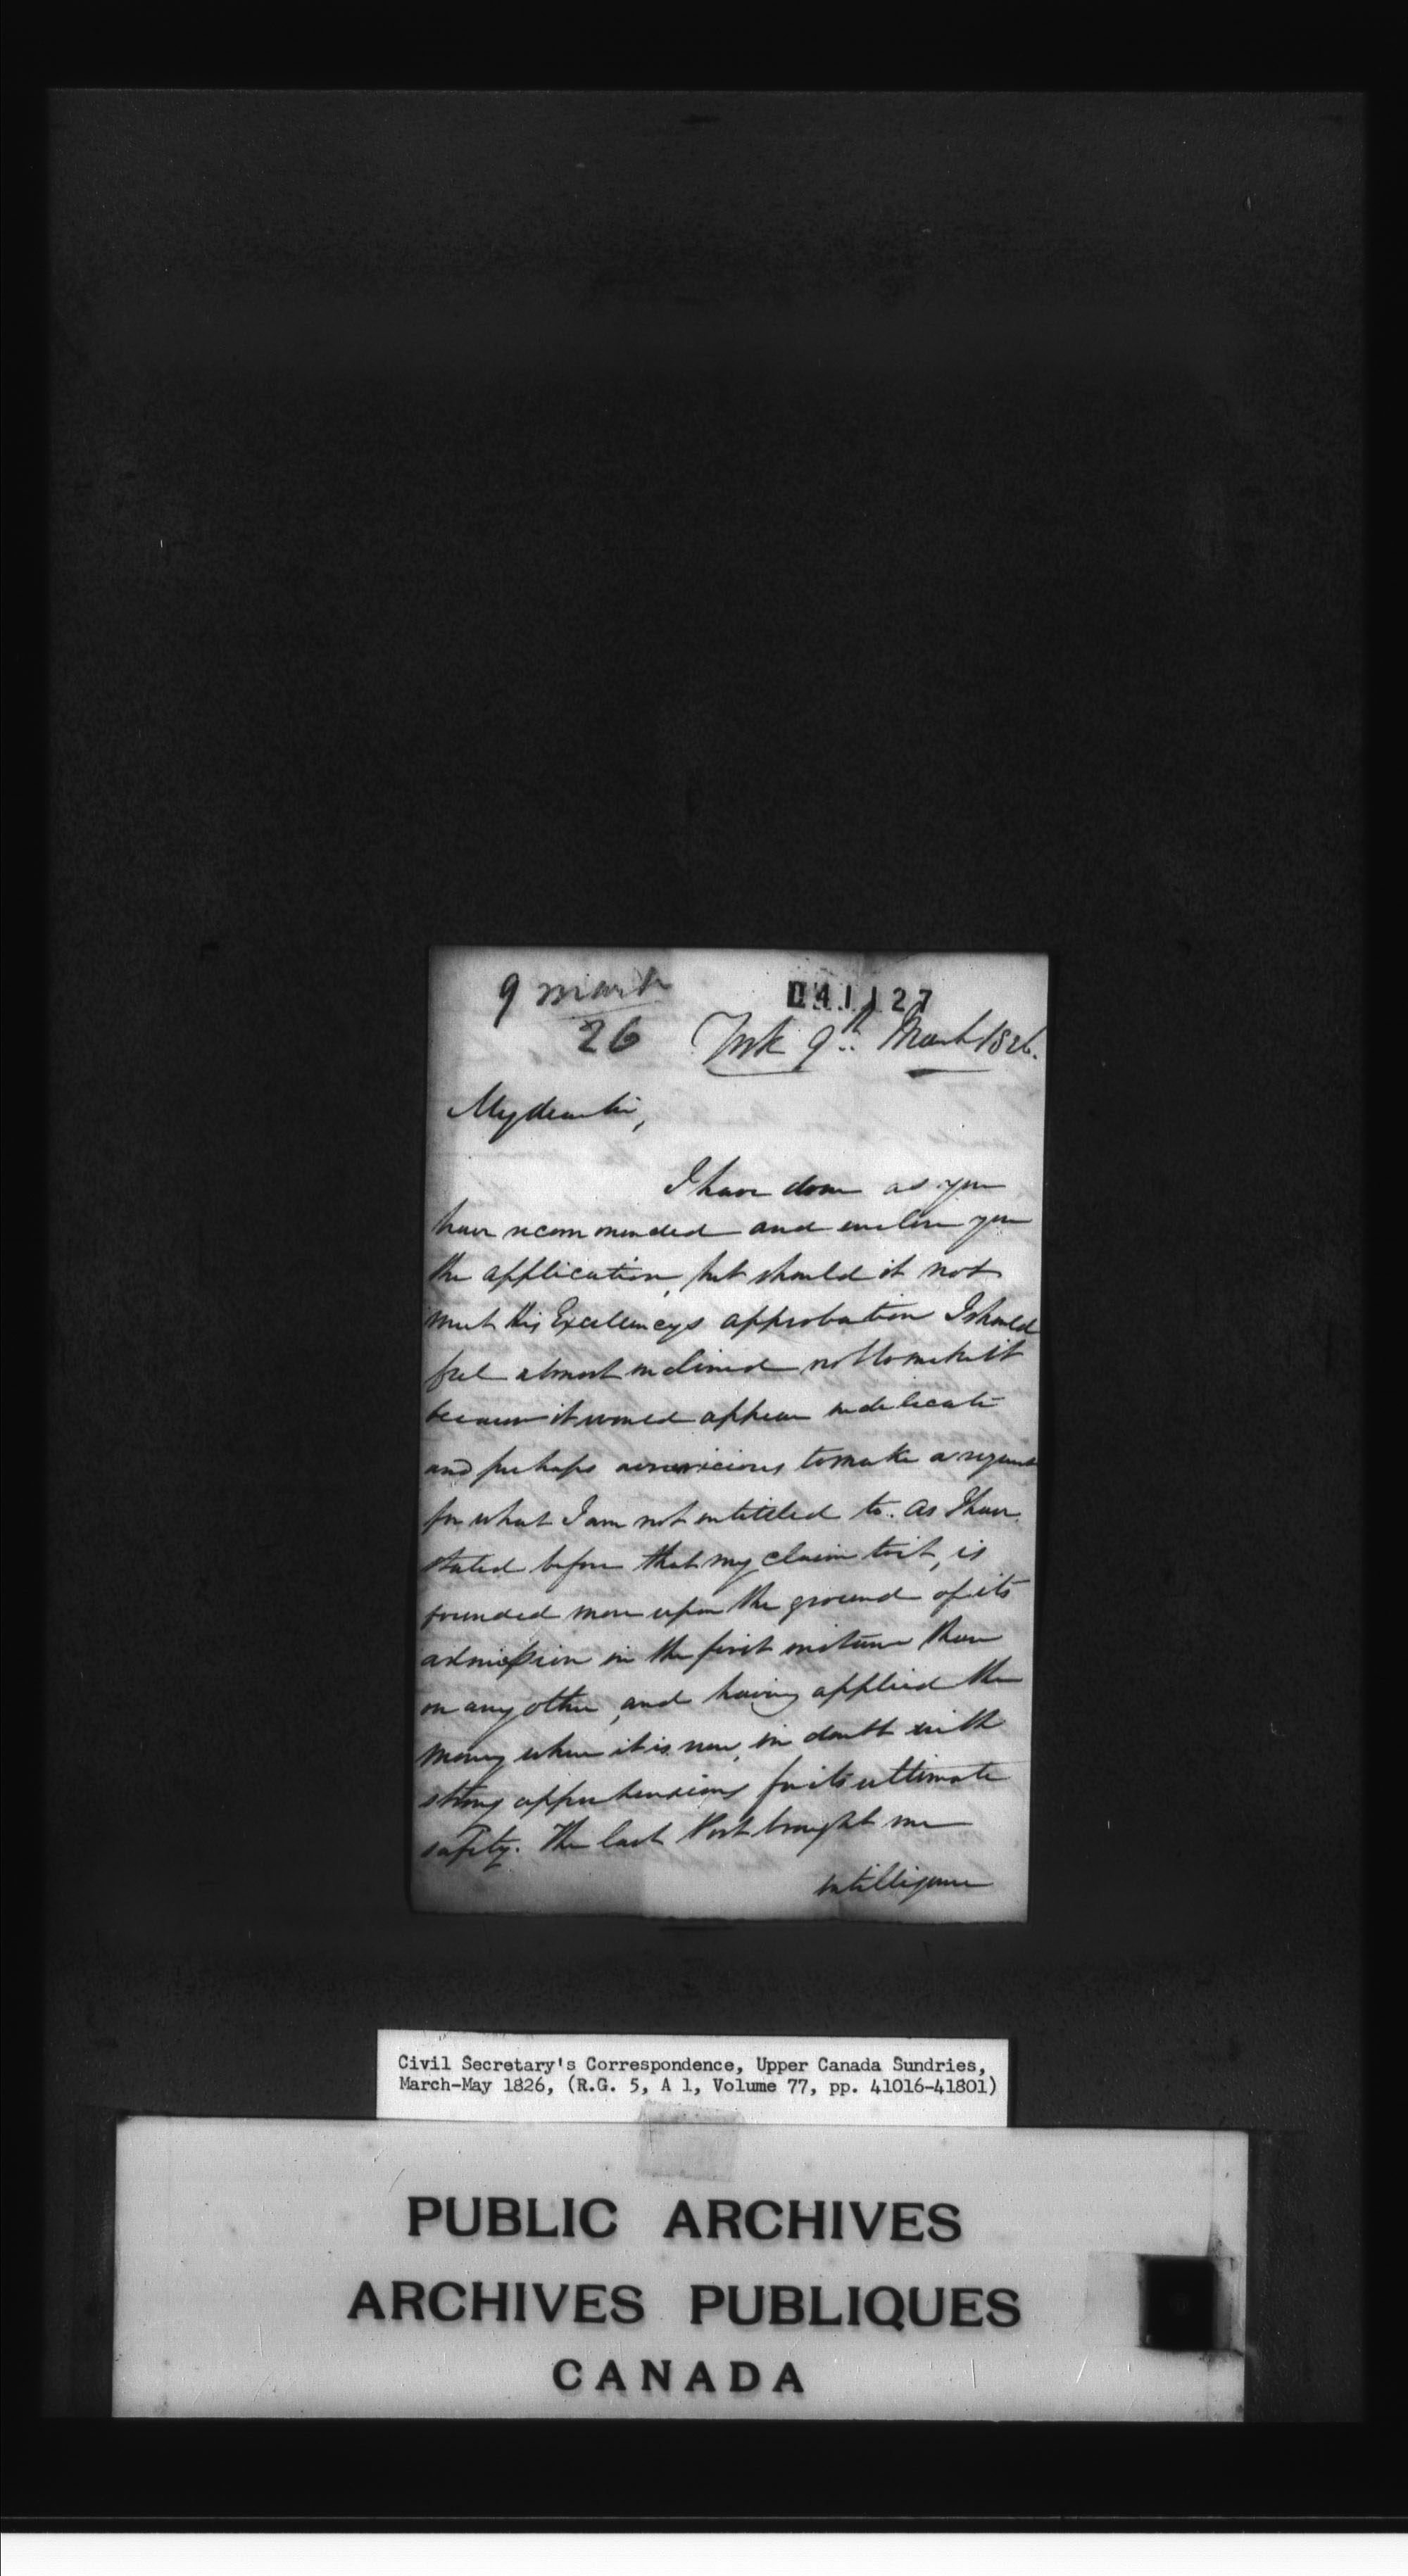 9 March
26
041127
York 9th March 1826.
My dear Sir,
I have done as you
have recommended and enclose you
the application, but should it not
meet His Excellencys approbation I should
feel almost inclined not to make it
because it would appear indelicate
and perhaps avaricious to make a request
for what I am not entitled to. As I have
stated before that my claim to it, is
founded more upon the ground of its
admission in the first instance than
on any other, and having applied the
money where it is now, in doubt with
strong apprehensions for its ultimate
safety. The last Post brought me
intelligence
Civil Secretary's Correspondence, Upper Canada Sundries,
March-May 1826, (R.G. 5, A 1, Volume 77, pp. 41016-41801)
PUBLIC ARCHIVES
ARCHIVES PUBLIQUES
CANADA